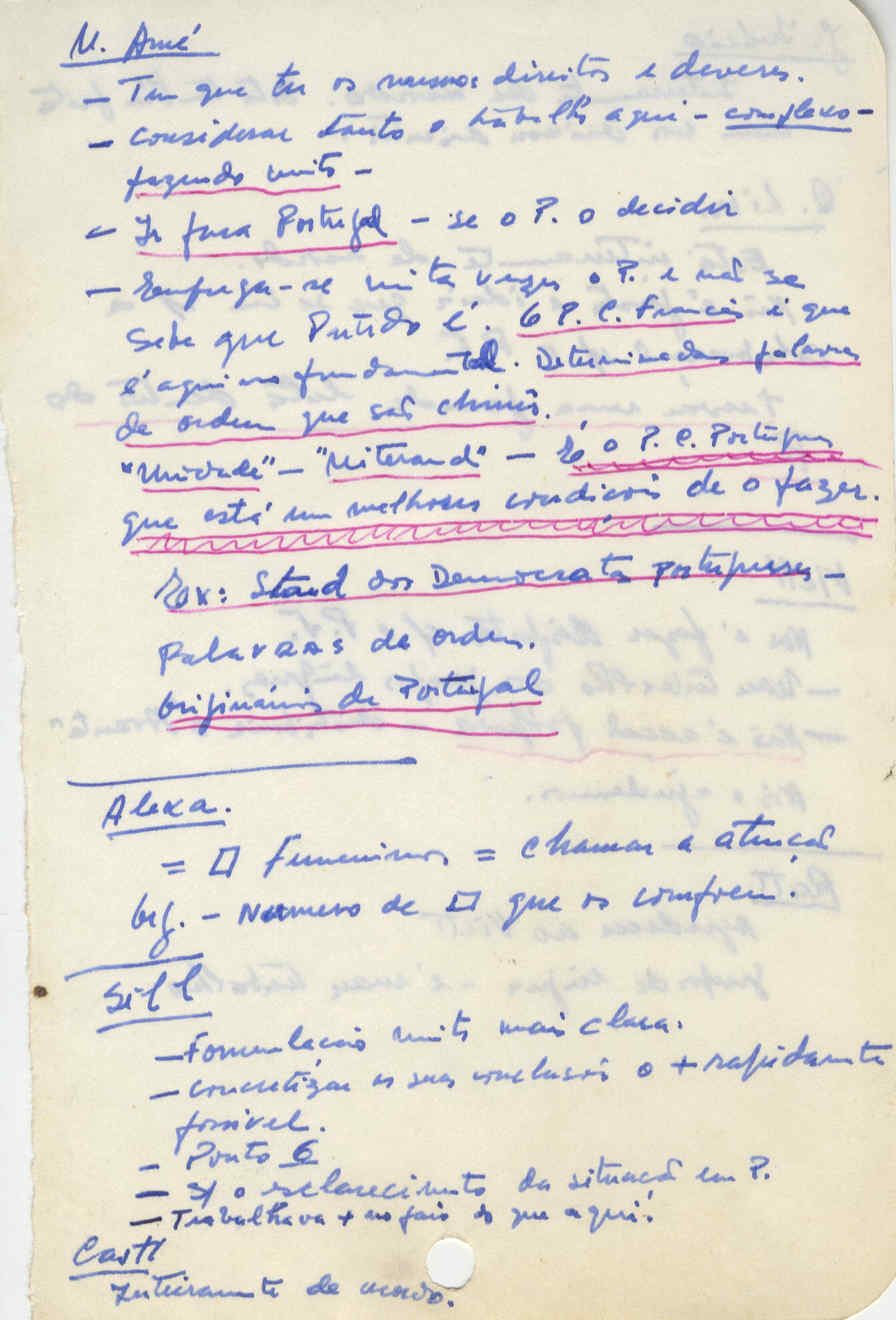 M. Amé
- Tem que ter os mesmos direitos e deveres.
- Considerar tanto o trabalho aqui - complexo -
fazendo muito -
- Ir para Portugal - se o P. o decidir
- Emprega-se muita vezes o P. e não se
sabe que Partido é. O P. C. Francês é que
é aqui no fundamental. Determinadas palavras
de ordem que são
"Unidade" - "Miterand" - É o P. C. Português
que está em melhores condições de o fazer.
Ex: Stand dos Democratas portugueses -
Palavras de ordem.
Originários de Portugal
Alexa.
= Femeninos = chamar a atenção
Org. - Numero de que os compõem.
Sill
- Formulação muito mais clara.
- Concretizar as suas conclusões o + rapidamente
possível.
- Ponto 6
- S/ o esclarecimento da situação em P.
- Trabalhava + no país do que aqui.
Castl
Inteiramente de acordo.